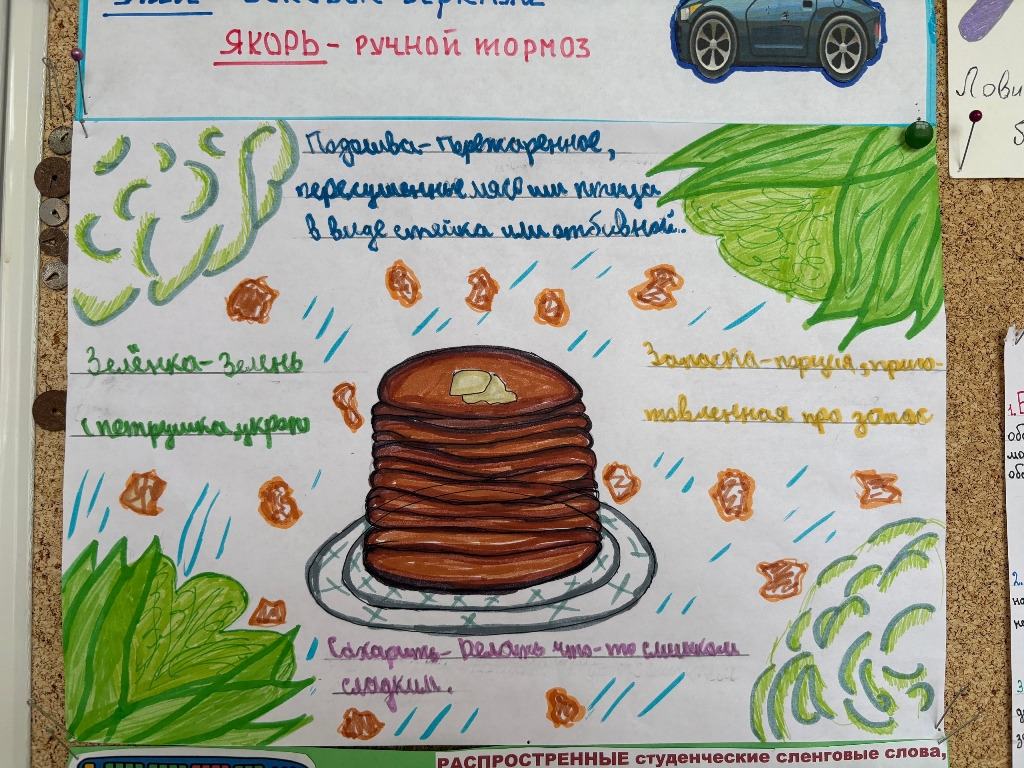 ЯКОРЬ - РУЧНОЙ ТОРМОЗ
Лови
Подошва - Пережаренное,
пересушенные мясо или птица
в виде стейка или отбивной.
Зелёнка - Зелень
(петрушка, укроп
Запаска - порция, приго-
товленная про запас
Сахарить - Делать что-то слишком
сладким.
РАСПРОСТРЕННЫЕ студенческие сленговые слова,